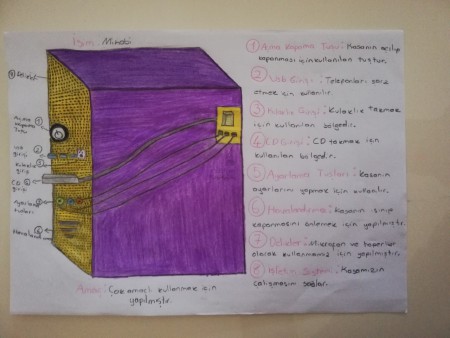 İsim: Mikobi
① Açma kapama Tuşu: Kasanın açılıp
kapanması için kullanılan tuştur.
② Usb Girişi: Telefonları şarz
etmek için kullanılır.
③ Kulaklık Girişi: Kulaklık takmak
için kullanılan bölgedir.
④ CD Girişi: CD takmak için
kullanılan bölgedir.
⑤ Ayarlama Tuşları: Kasanın
ayarlarını yapmak için kullanılır.
⑥ Havalandırma: Kasanın ısınıp
yapılmıştır.
⑦ Delikler: Mikrofon ve hoparlör
olarak kullanmamız için yapılmıştır.
⑧ İşletim Sistemi: Kasamızın
çalışmasını sağlar.
Açma
kapama
Tuşu
①
usb
girişi
②
Kulaklık
girişi
③
CD
girişi
④
Ayarlama
tuşları
⑤
⑥
Amaç: Çok amaçlı kullanmak için
yapılmıştır.